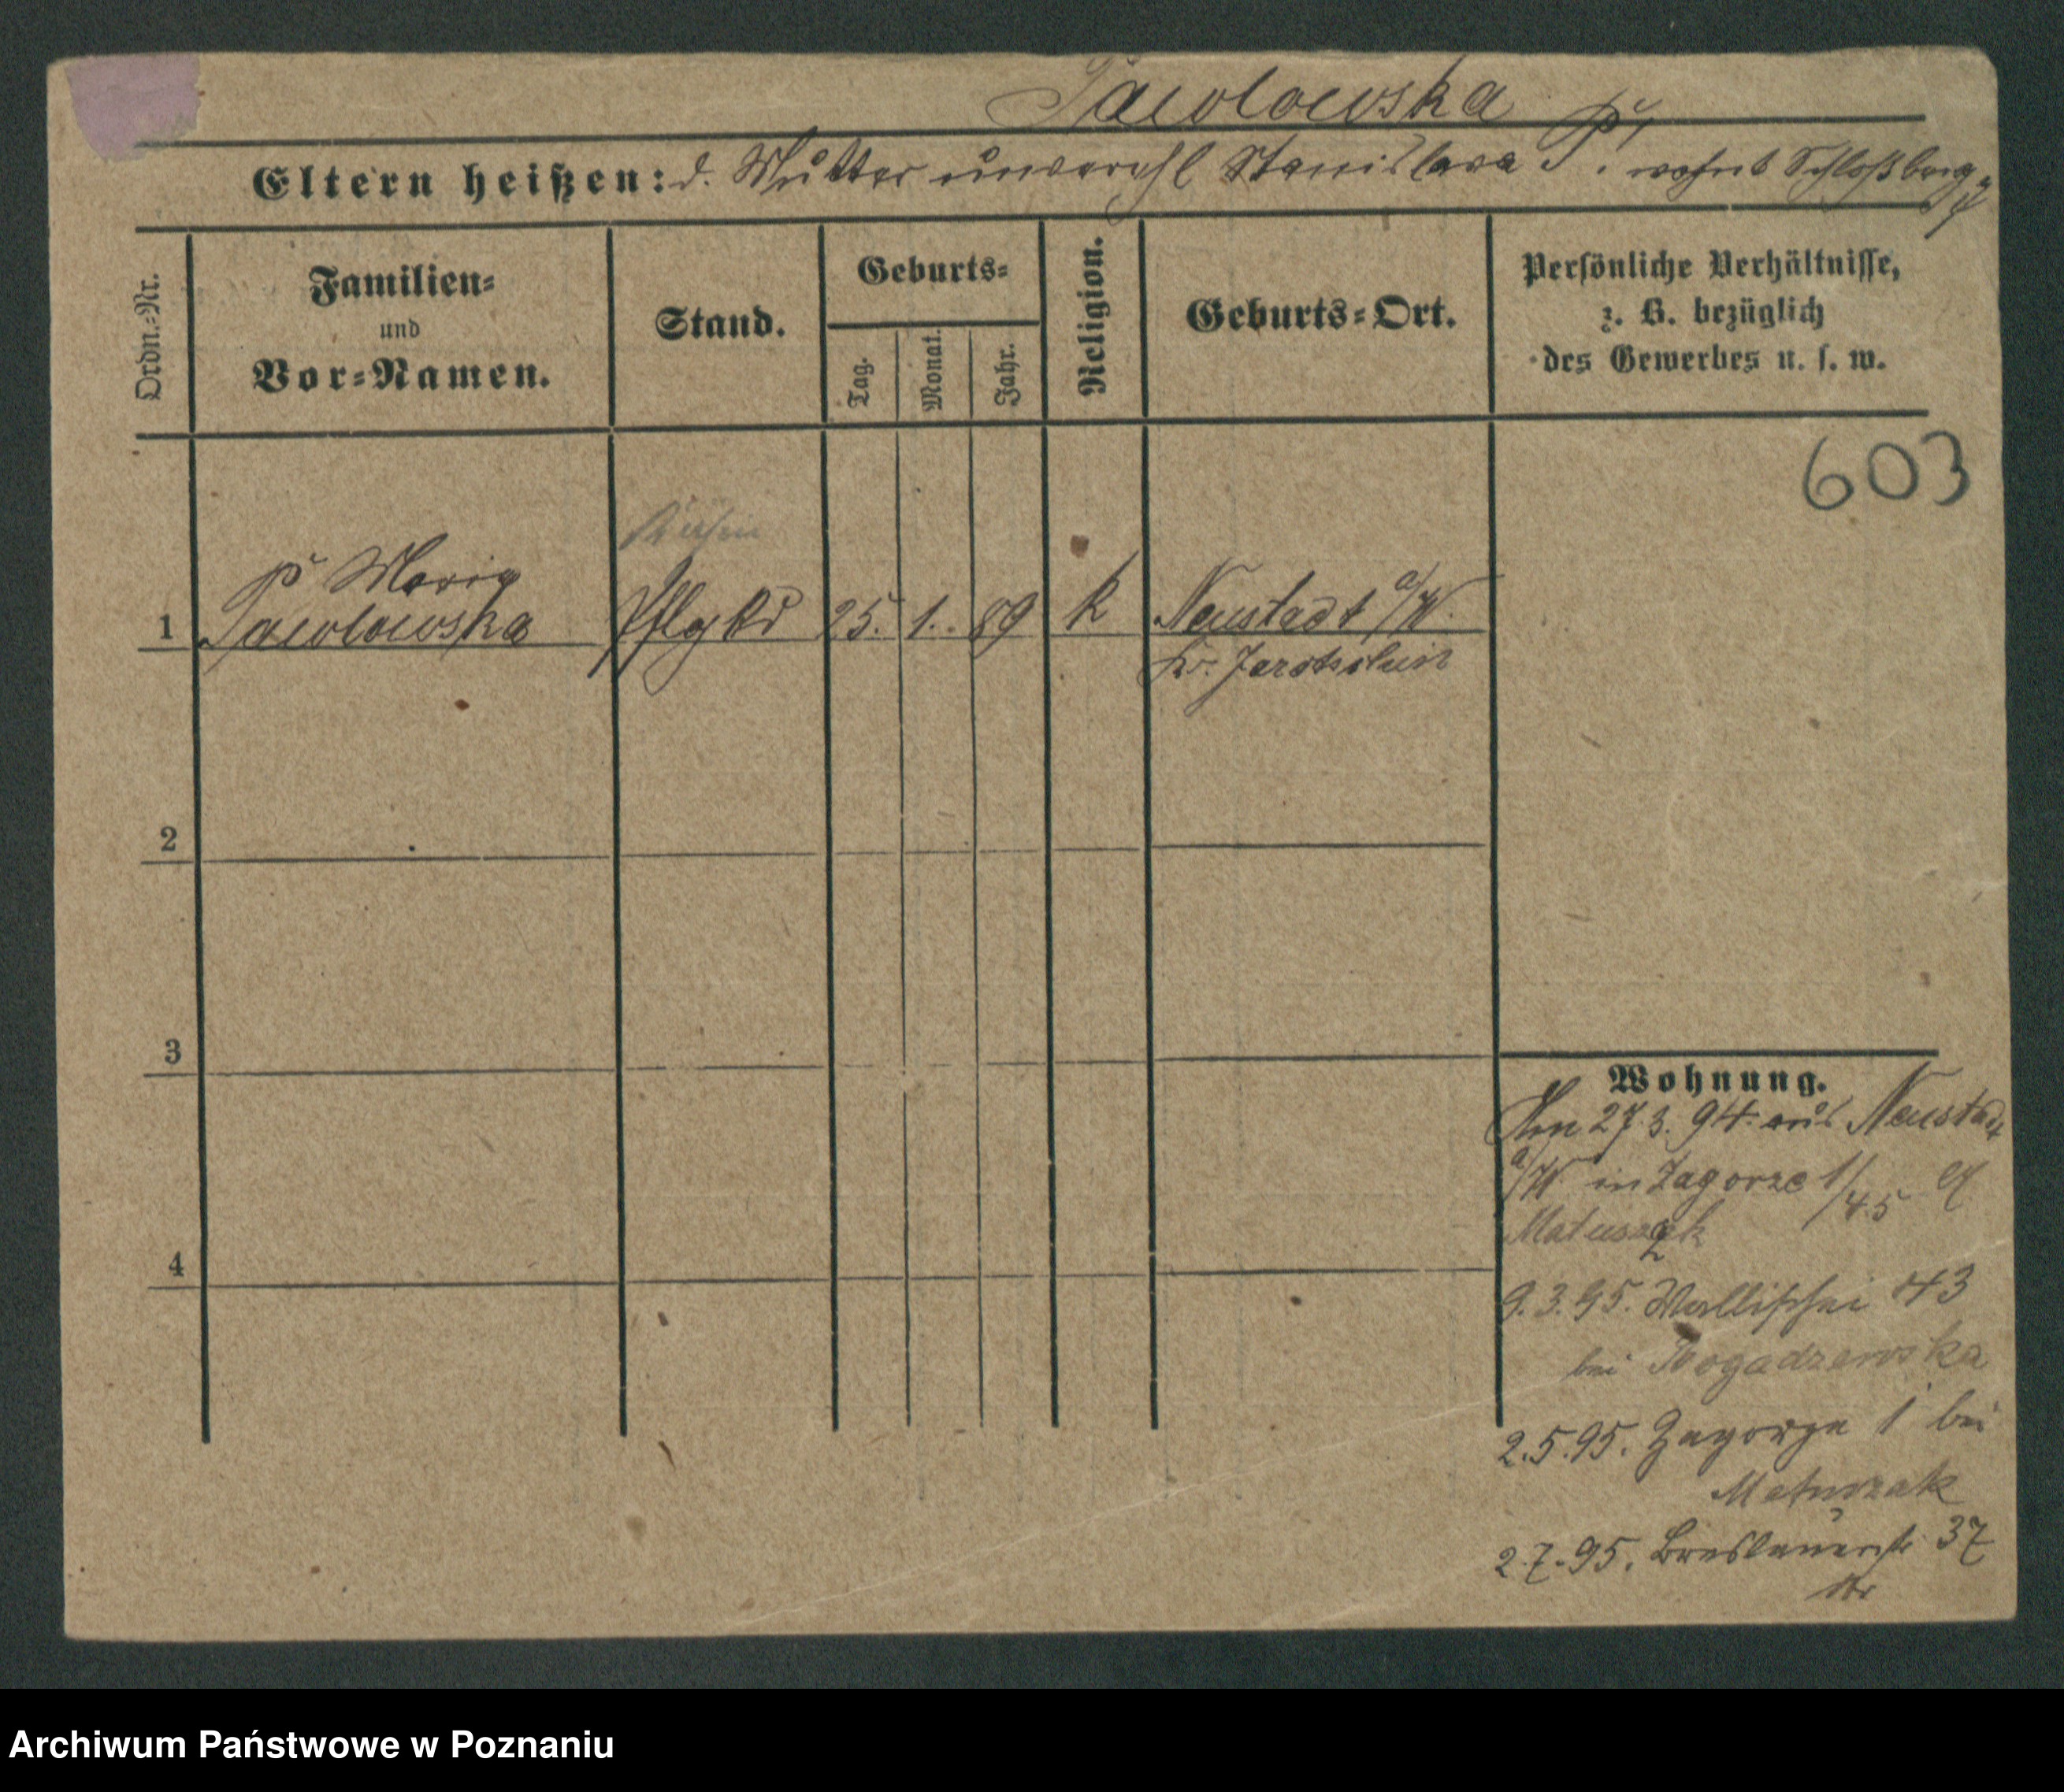 Pawlowska
Eltern heißen: d. Mutter unverehl Stanislava P. wohnt Schloßberg 4
Ordn.-Nr.
Familien-
und
Vor-Namen.
Stand.
Geburts-
Tag.
Monat.
Jahr.
Religion.
Geburts-Ort.
Persönliche Verhältnisse,
z. B. bezüglich
des Gewerbes u. s. w.
603
Maria
1 Pawlowska Pflgkd 25. 1. 89 k Neustadt a/W.
Kr. Jarotschin
2
3
4
Wohnung.
Am 27.3.94 aus Neustadt
a/W in Zagorze 1/45
Matuszak
9.3.95. Wallischei 43
bei Pogadzewska
2.5.95. Zagorze 1 bei
Matuszak
2.7.95. Breslauerstr 37
Archiwum Państwowe w Poznaniu